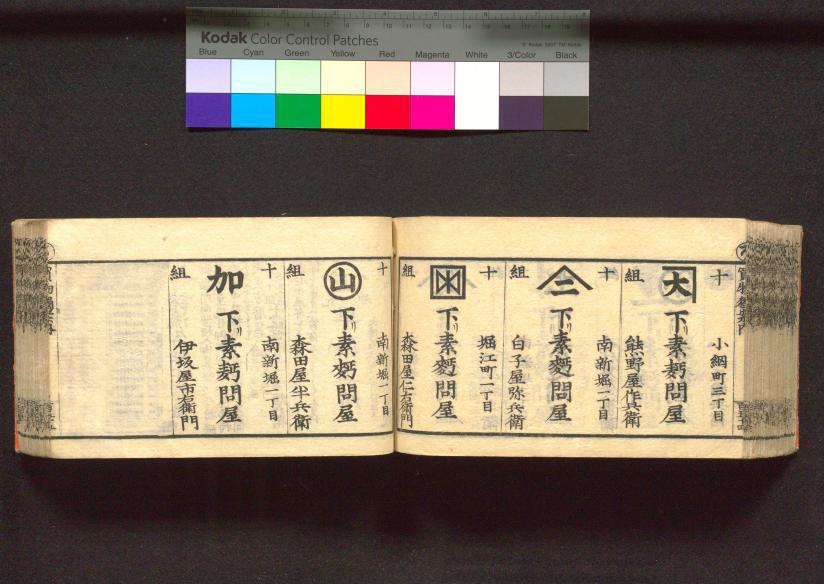 Kodak Color Control Patches
© Kodak, 2007 TM: Kodak
Blue Cyan Green Yellow Red Magenta White 3/Color Black
十 小網町三丁目
大 下リ素麪問屋
組 熊野屋作兵衛
十 南新堀一丁目
二 下リ素麪問屋
組 白子屋弥兵衛
十 堀江町一丁目
下リ素麪問屋
組 森田屋仁右衛門
十 南新堀一丁目
山 下リ素麪問屋
組 森田屋半兵衛
十 南新堀一丁目
加 下リ素麪問屋
組 伊坂屋市右衛門